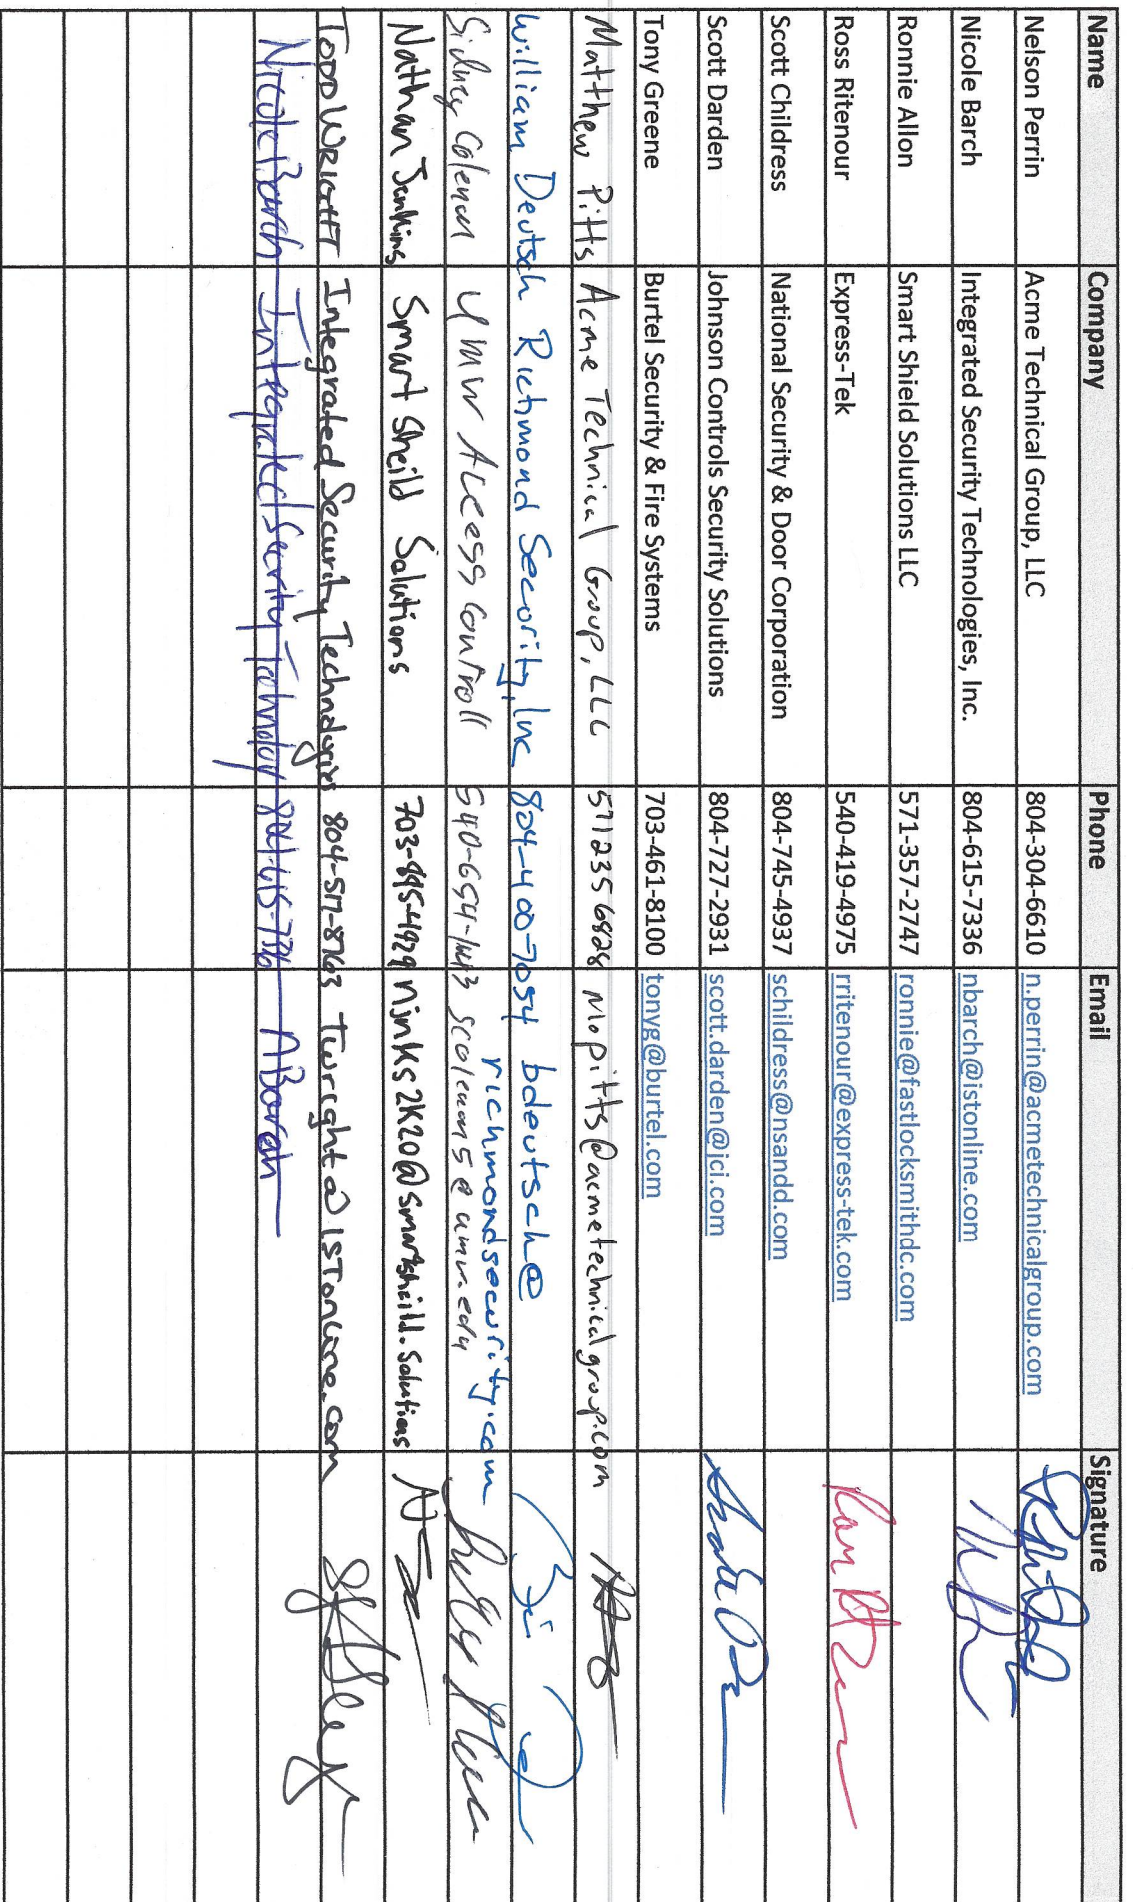 Name Company Phone Email Signature
Nelson Perrin Acme Technical Group, LLC 804-304-6610 n.perrin@acmetechnicalgroup.com
Nicole Barch Integrated Security Technologies, Inc. 804-615-7336 nbarch@istonline.com
Ronnie Allon Smart Shield Solutions LLC 571-357-2747 ronnie@fastlocksmithdc.com
Ross Ritenour Express-Tek 540-419-4975 rritenour@express-tek.com
Scott Childress National Security & Door Corporation 804-745-4937 schildress@nsandd.com
Scott Darden Johnson Controls Security Solutions 804-727-2931 scott.darden@jci.com
Tony Greene Burtel Security & Fire Systems 703-461-8100 tonyg@burtel.com
Matthew Pitts Acme Technical Group, LLC 5712356828 mopitts@acmetechnicalgroup.com
William Deutsch Richmond Security, Inc 804-400-7054 bdeutsch@
richmondsecurity.com
Sidney Coleman UMW Access Controll
Nathan Jenkins Smart Sheild Solutions 703-895-4929 njnks2k20@smartsheild.solutions
Todd Wright Integrated Security Technologies Twright@ISTonline.com
Nicole Barch Integrated Security Technology